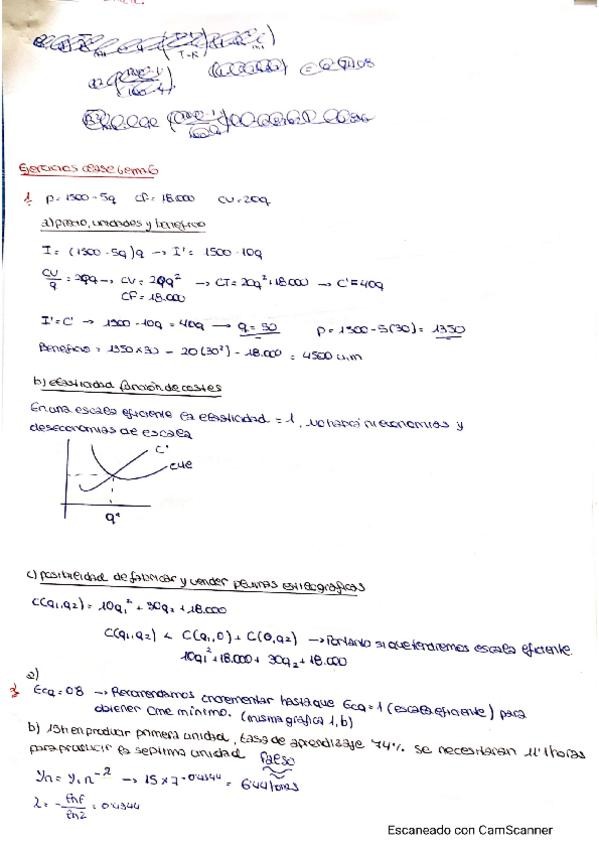 T-R
= 0'9208
Ejercicios clase tema 6
1. p = 1500 - 5q CF = 18.000 CV = 20q
a) precio, unidades y beneficio
I = (1500 - 5q)q → I' = 1500 - 10q
CV/q = 20q → CV = 20q² → CT = 20q² + 18.000 → C' = 40q
CF = 18.000
I' = C' → 1500 - 10q = 40q → q = 30 p = 1500 - 5(30) = 1350
Beneficio = 1350 x 30 - 20(30²) - 18.000 = 4500 u.m
b) elasticidad función de costes
En una escala eficiente la elasticidad = 1, no hay ni economías y
deseconomías de escala
C'
CMe
q*
c) posibilidad de fabricar y vender plumas estilográficas
C(q₁,q₂) = 10q₁² + 30q₂ + 18.000
C(q₁,q₂) < C(q₁,0) + C(0,q₂) → Por tanto si que tendremos escala eficiente.
10q₁² + 18.000 + 30q₂ + 18.000
a)
Ecq = 0'8 → Recomendamos incrementar hasta que Ecq = 1 (escala eficiente) para
obtener Cme mínimo. (misma gráfica 1, b)
b) 15h en producir primera unidad, tasa de aprendizaje 74%. Se necesitaran 11' horas
para producir la septima unidad Falso
Yn = Y₁n^-λ → 15 x 7^-0'4344 = 6'44 horas
λ = - ln r / ln 2 = 0'4344
Escaneado con CamScanner